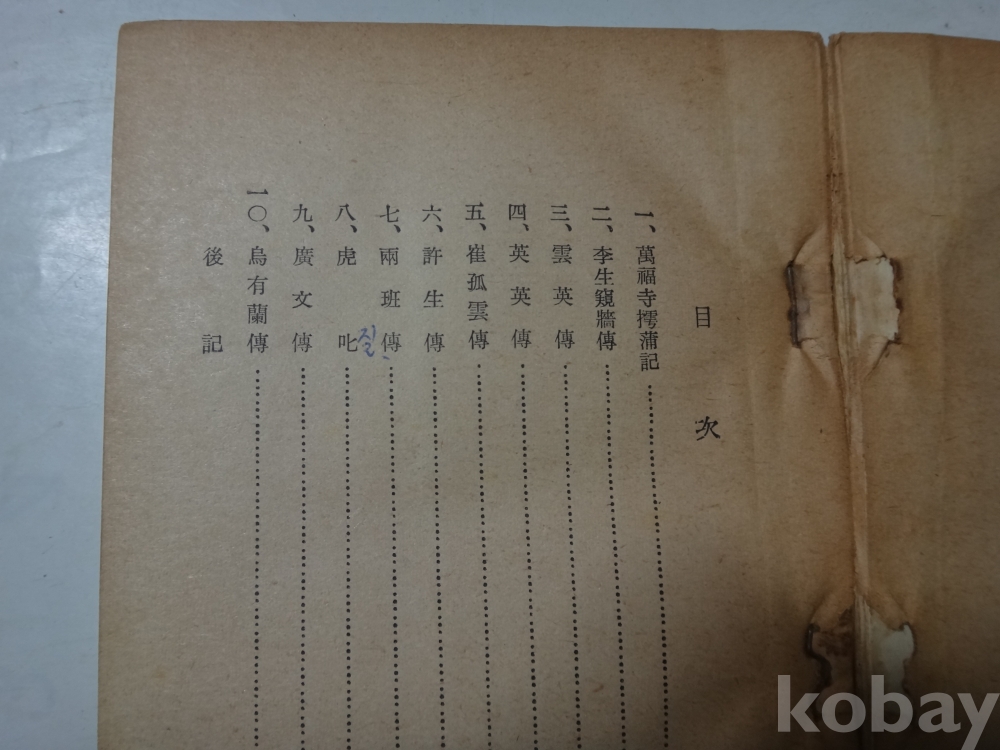 目次
一、萬福寺摴蒲記
二、李生窺牆傳
三、雲英傳
四、英英傳
五、崔孤雲傳
六、許生傳
七、兩班傳
八、虎叱
질
九、廣文傳
一〇、烏有蘭傳
後記
kobay